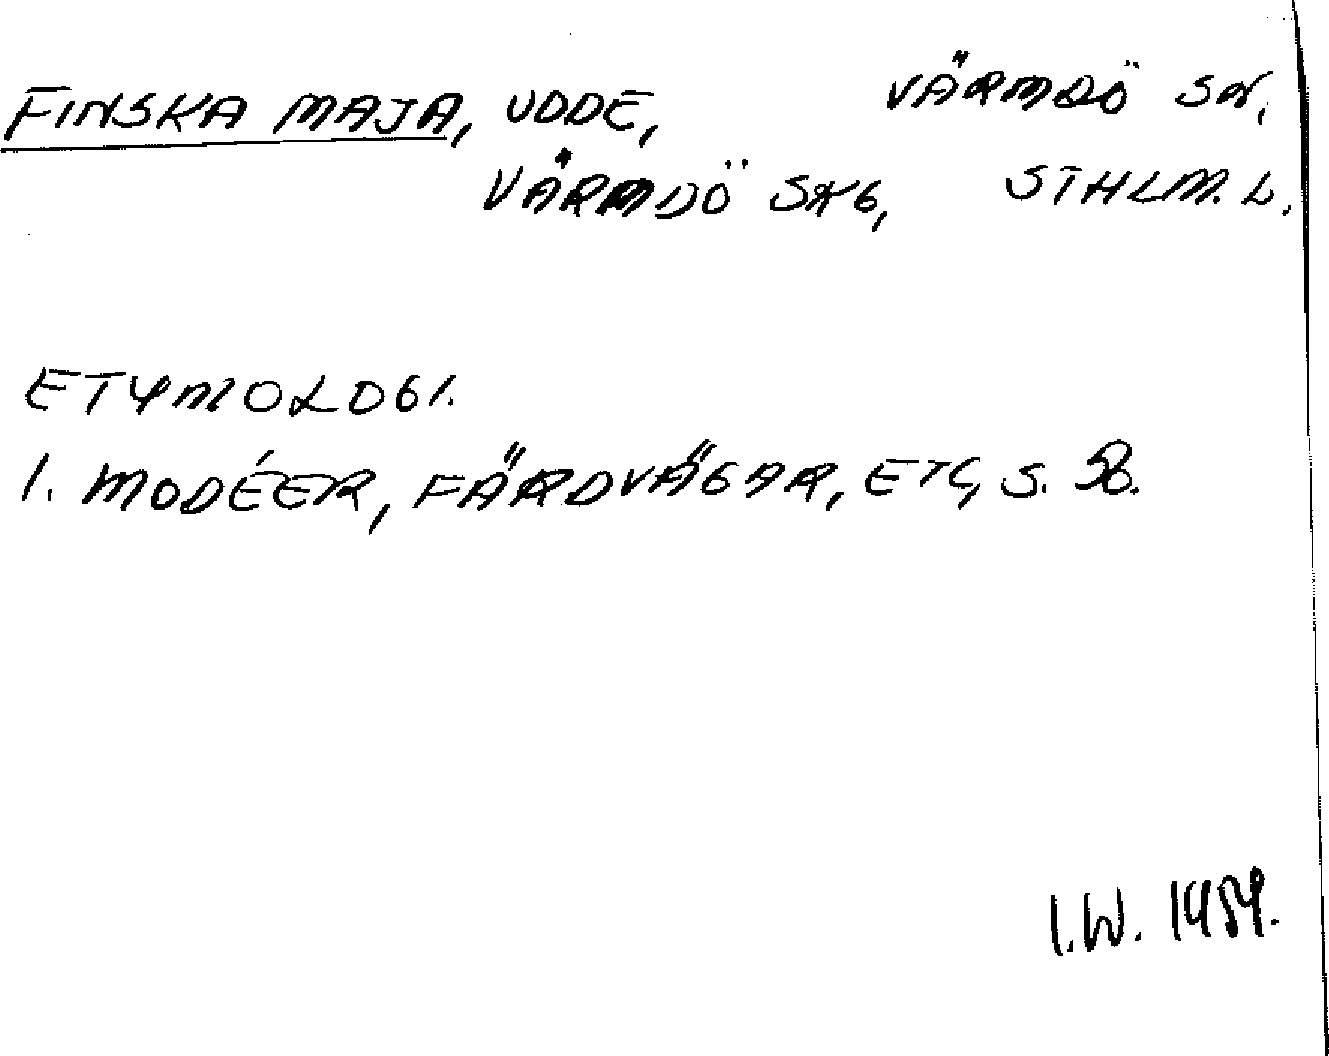 FINSKA MAJA, UDDE, VÄRMDÖ SN,
VÄRMDÖ SKG, STHLM. L.
ETYMOLOGI.
1. MODÉER, FÄRDVÄGAR, ETC, S.
I.W. 1959.